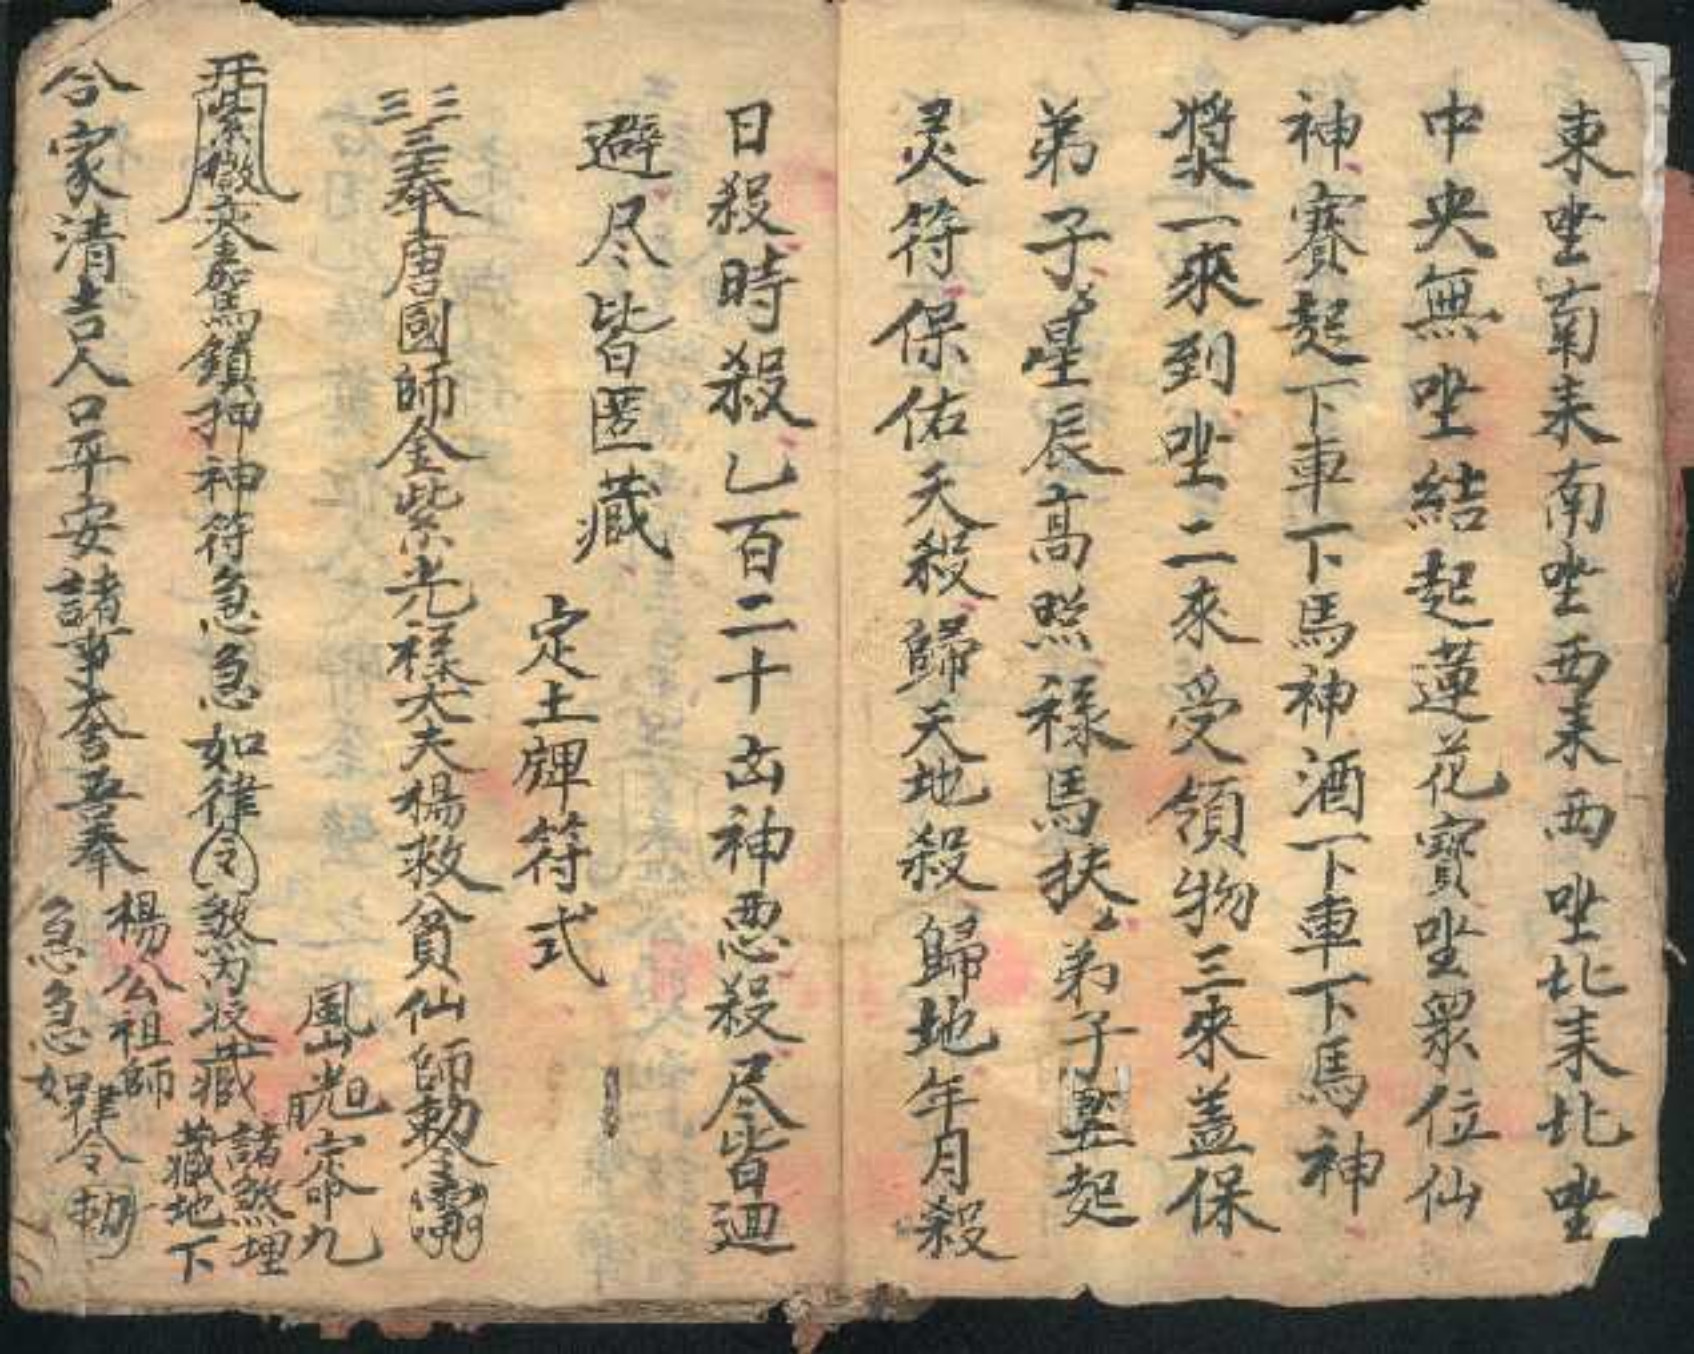 東坐南耒南坐西耒西坐北耒北坐
中央無坐結起蓮花寶坐衆位仙
神賽起下車下馬神酒下車下馬神
漿一來到坐二來受領物三來盖保
弟子星辰高照祿馬扶弟子起
灵符保佑天殺歸天地殺歸地年月殺
日殺時殺乙百二十凶神恶殺尽皆迴
避尽皆匿藏
定土符式
三三三奉唐國師金紫光祿大夫楊救貧仙師勅令
紫微鎖押神符急急如律令煞内收藏
諸煞埋
藏地下
合家清吉人口平安諸事大吉吾奉
楊公祖師
急急如律令勅